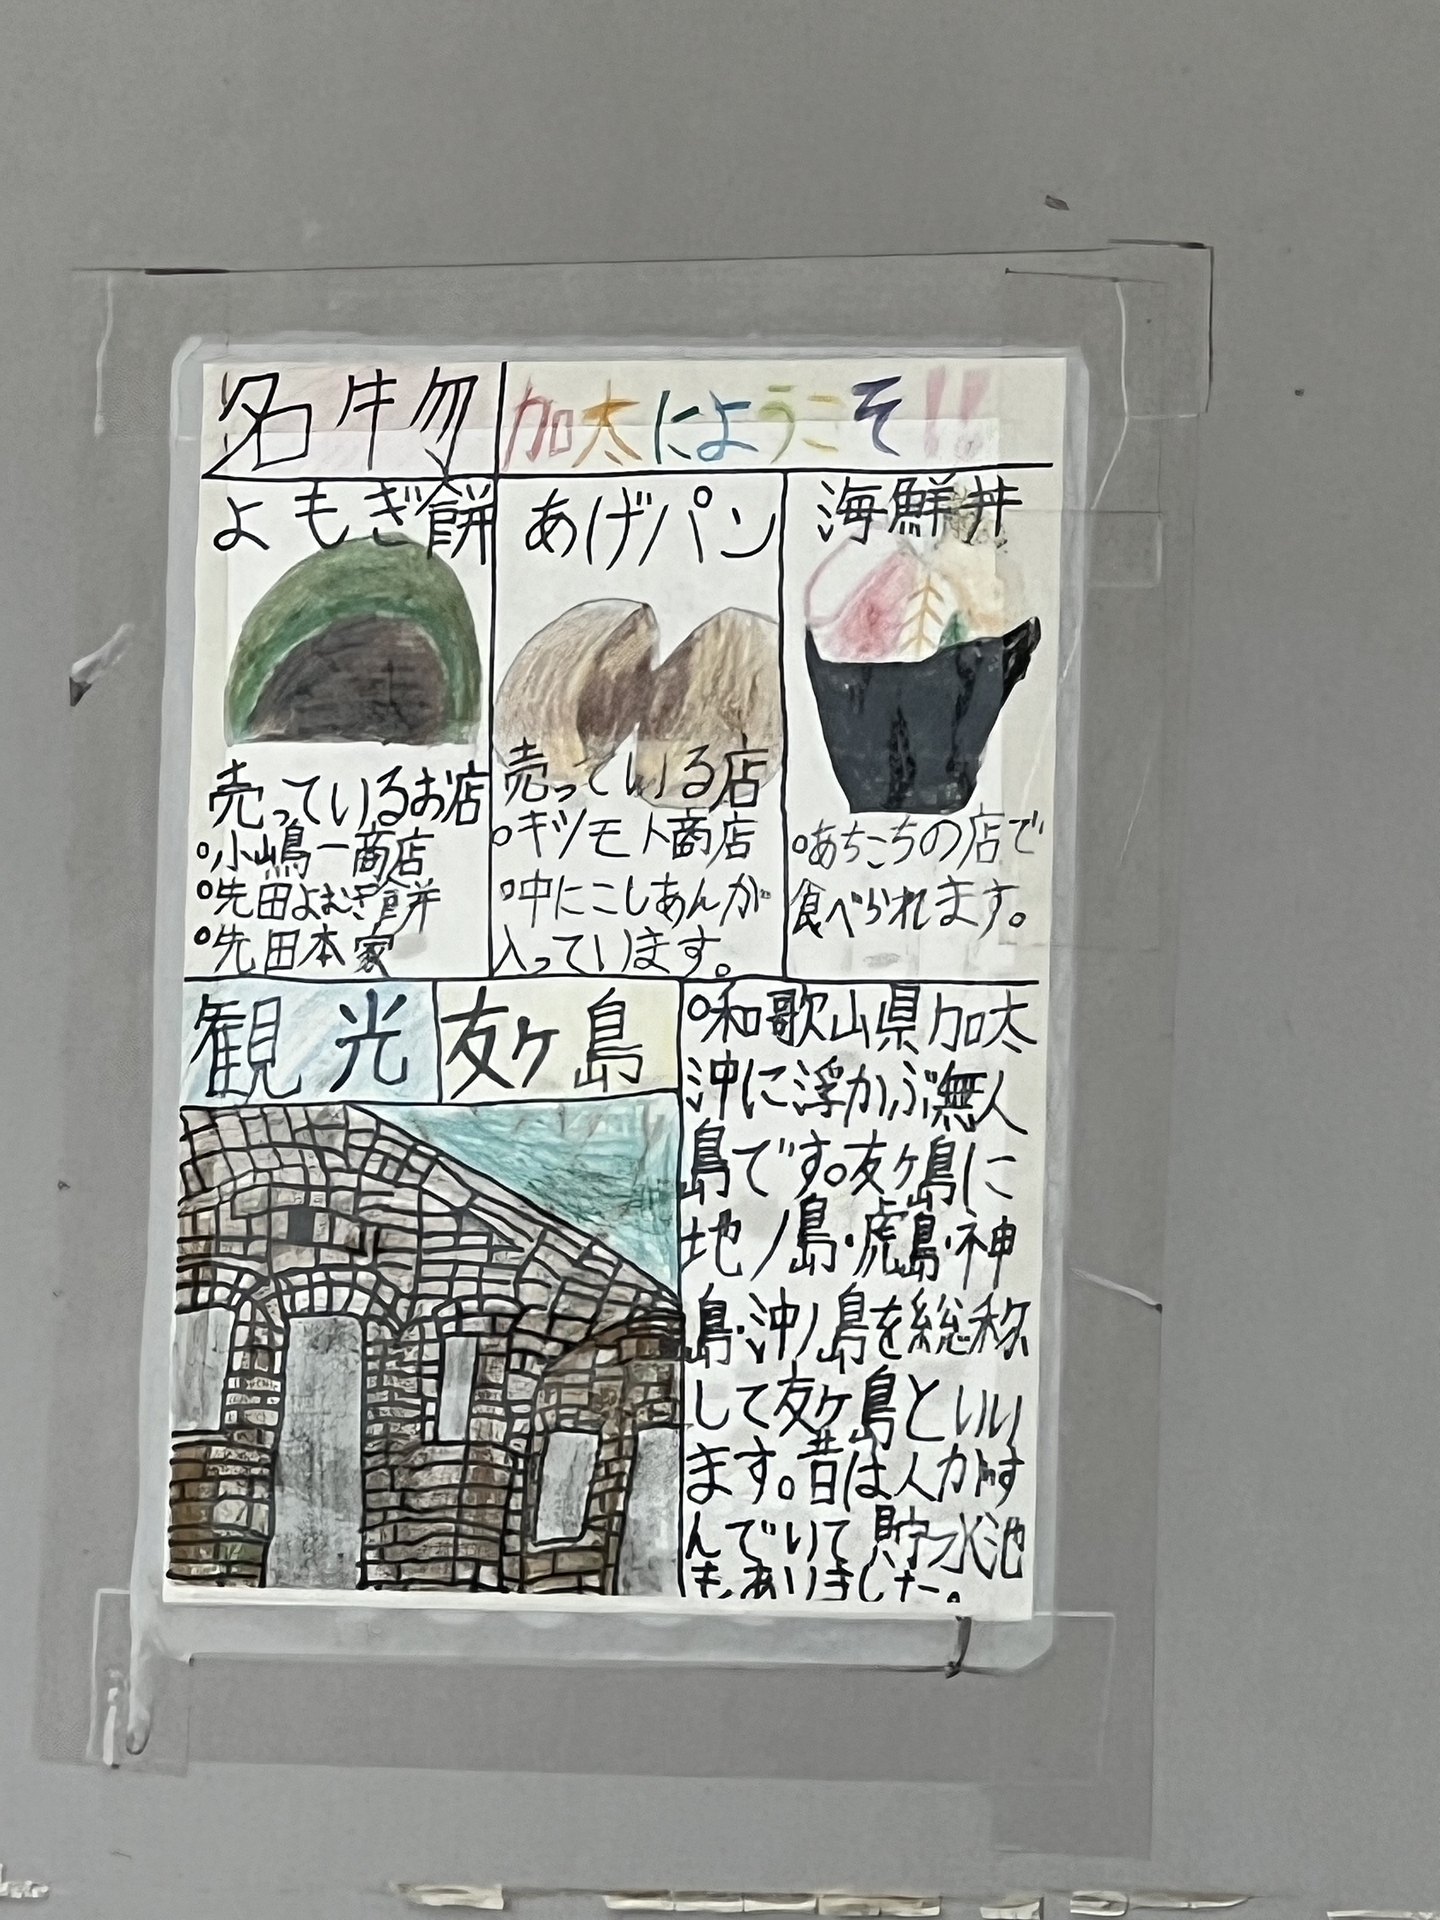 名物
加太にようこそ!!
よもぎ餅
売っているお店
○小嶋一商店
○先田よもぎ餅
○先田本家
あげパン
売っている店
○キツモト商店
○中にこしあんが
入っています。
海鮮丼
○あちこちの店で
食べられます。
観光
友ヶ島
○和歌山県加太
沖に浮かぶ無人
島です。友ヶ島に
地ノ島・虎島・神
島・沖ノ島を総称
して友ヶ島といい
ます。昔は人がす
んでいて貯水池
もありました。